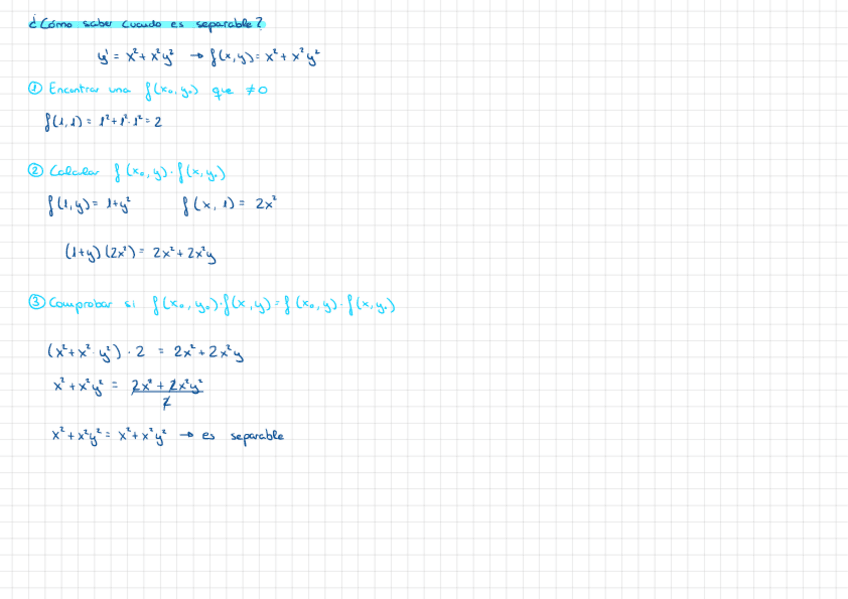 ¿Cómo saber cuando es separable?
y' = x² + x²y² → f(x,y) = x² + x²y²
① Encontrar una f(x₀,y₀) que ≠0
f(1,1) = 1² + 1²·1² = 2
② Calcular f(x₀,y)·f(x,y₀)
f(1,y) = 1+y² f(x,1) = 2x²
(1+y)(2x²) = 2x² + 2x²y
③ Comprobar si f(x₀,y₀)·f(x,y) = f(x₀,y)·f(x,y₀)
(x² + x²·y²)·2 = 2x² + 2x²y
x² + x²y² = 2x² + 2x²y² / 2
x² + x²y² = x² + x²y² → es separable